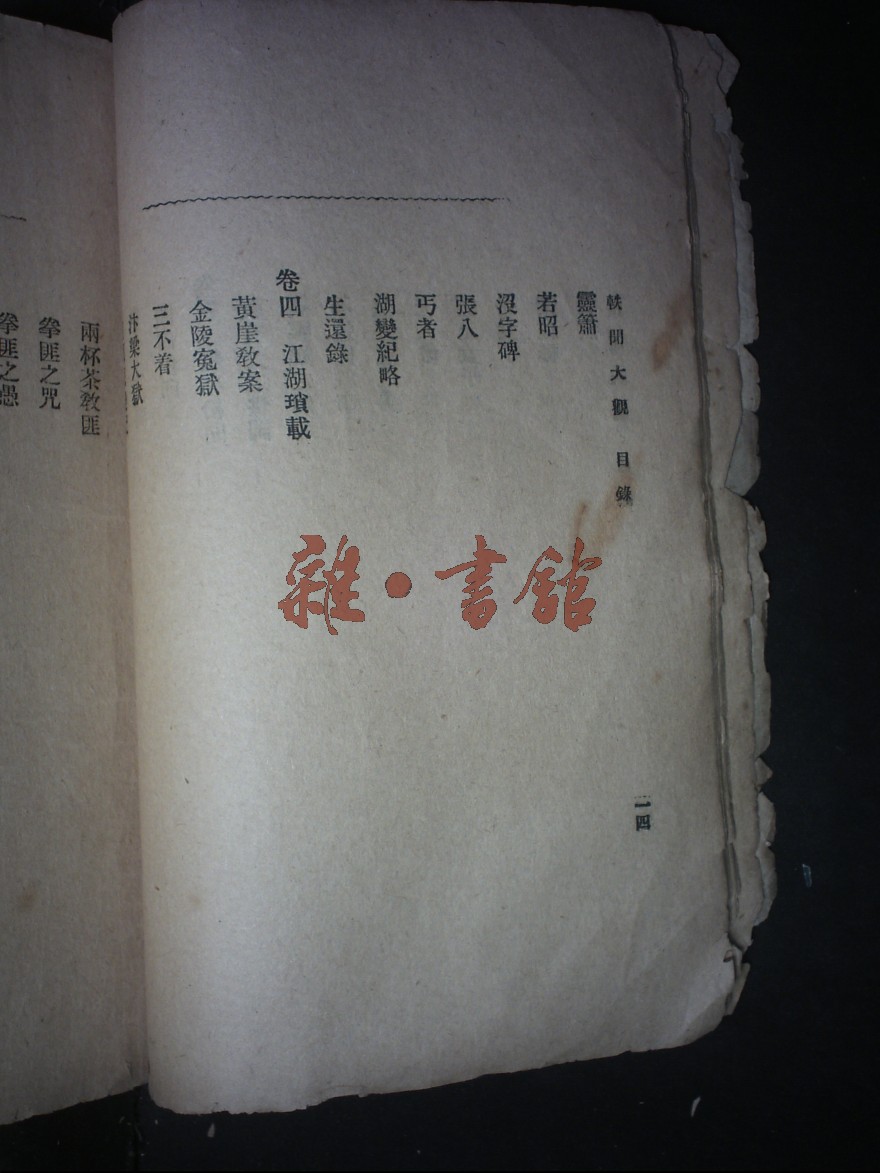 軼聞大觀 目錄
二四
靈簫
若昭
沒字碑
張八
丐者
湖變紀略
生還錄
卷四 江湖瑣載
黃崖教案
金陵冤獄
三不着
汴梁大獄
兩杯茶教匪
拳匪之咒
拳匪之愚
雜·書館